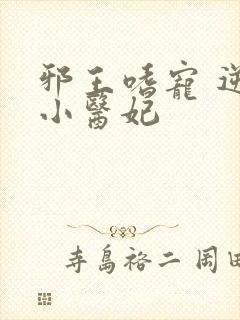 邪王嗜寵 逆
小醫妃
寺島裕二 岡田